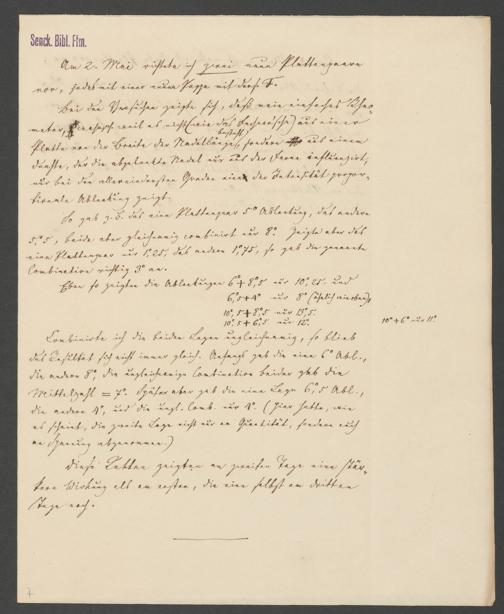 Senck. Bibl. Ffm.
Am 2. Mai richtete ich zwei neue Plattenpaare
vor, jedes mit einer neuen Pappe mit
Bei den Versuchen zeigte sich, daß mein einfaches
meter, weil es nicht (wie das Fechnersche) aus einer
Platte von der Breite der Nadellänge besteht, sondern aus einem
der die abgelenkte Nadel nur aus der Ferne
nur bei den allerniedersten Graden eine der Intensität propor-
tionale Ablenkung zeigt.
So gab z.B. das eine Plattenpaar 5° Ablenkung, das andere
5°,5, beide aber gleichnamig combinirt nur 8°. Zeigte aber das
eine Plattenpaar nur 1°,25, das andere 1°,75, so gab die genannte
Combination richtig 3° an.
Eben so zeigten die Ablenkungen 6°+8°,5 nur 10°,25, und
6°,5+4° nur 8°
10°,5+8°,5 nur 13°,5.
10°,5+6°,5 nur 12°.
10°+6° nur 11°
Combinirte ich die beiden Lagen ungleichnamig, so blieb
das Resultat sich nicht immer gleich. Anfangs gab die eine 6° Abl.,
die andere 8°, die ungleichnamige Combination beider gab die
Mittelzahl = 7°. Später aber gab die eine Lage 6°,5 Abl.,
die andere 4°, und die ungl. Comb. nur 4°. (Hier hatte, wie
es scheint, die zweite Lage nicht nur an Quantität, sondern auch
an Spannung abgenommen.)
Diese Ketten zeigten am zweiten Tage eine stär-
kere Wirkung als am ersten, die eine selbst am dritten
Tage noch.
7